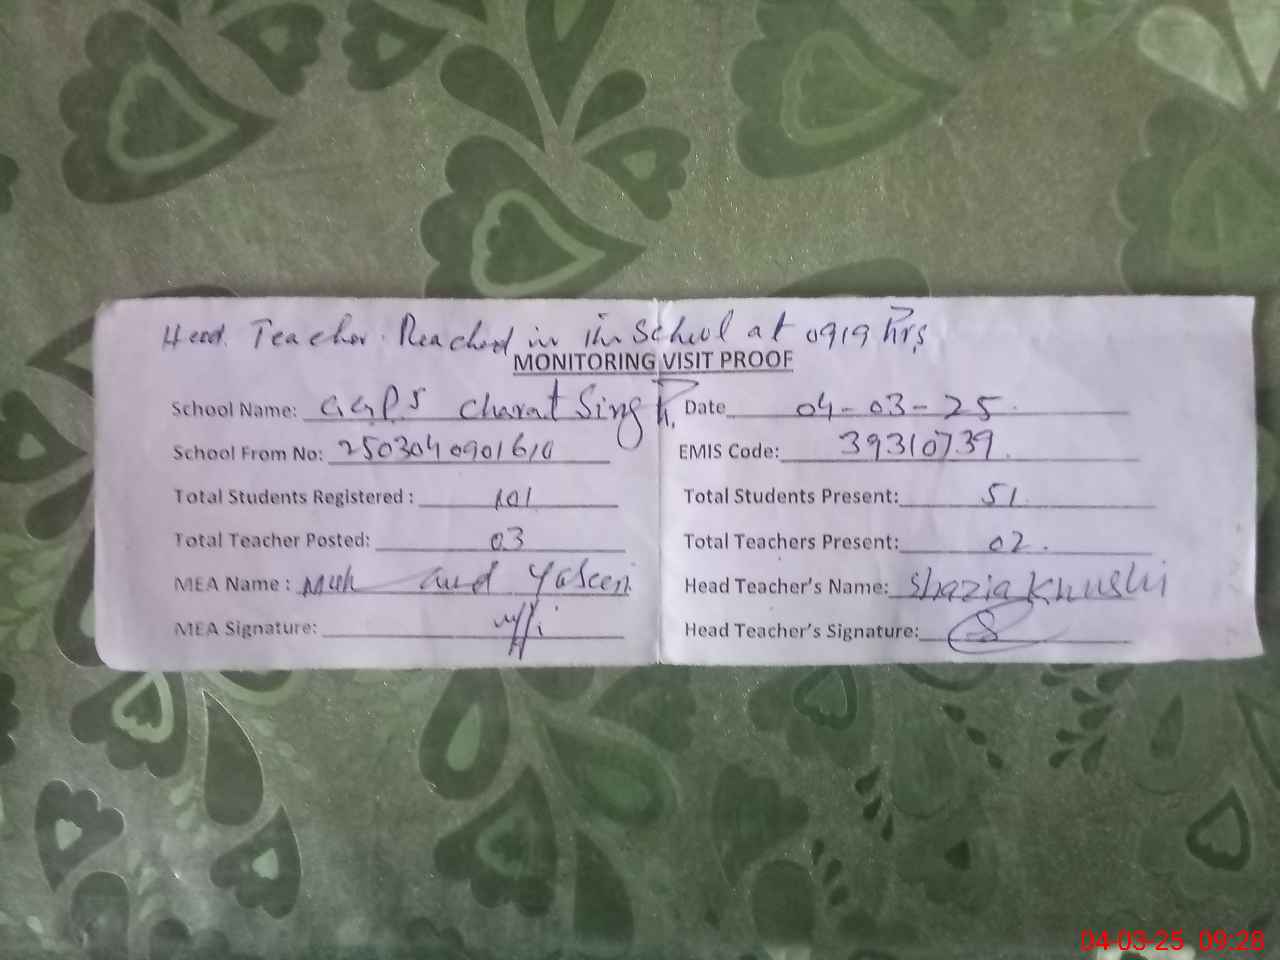 Head Teacher Reached in the School at 0919 hrs
MONITORING VISIT PROOF
School Name: GGPS Charat Singh. Date 04-03-25
School From No: 2503040901610 EMIS Code: 39310739
Total Students Registered : 101 Total Students Present: 51
Total Teacher Posted: 03 Total Teachers Present: 02.
MEA Name : Yaseen Head Teacher's Name: Shazia Khushi
MEA Signature: Head Teacher's Signature:
04-03-25 09:28